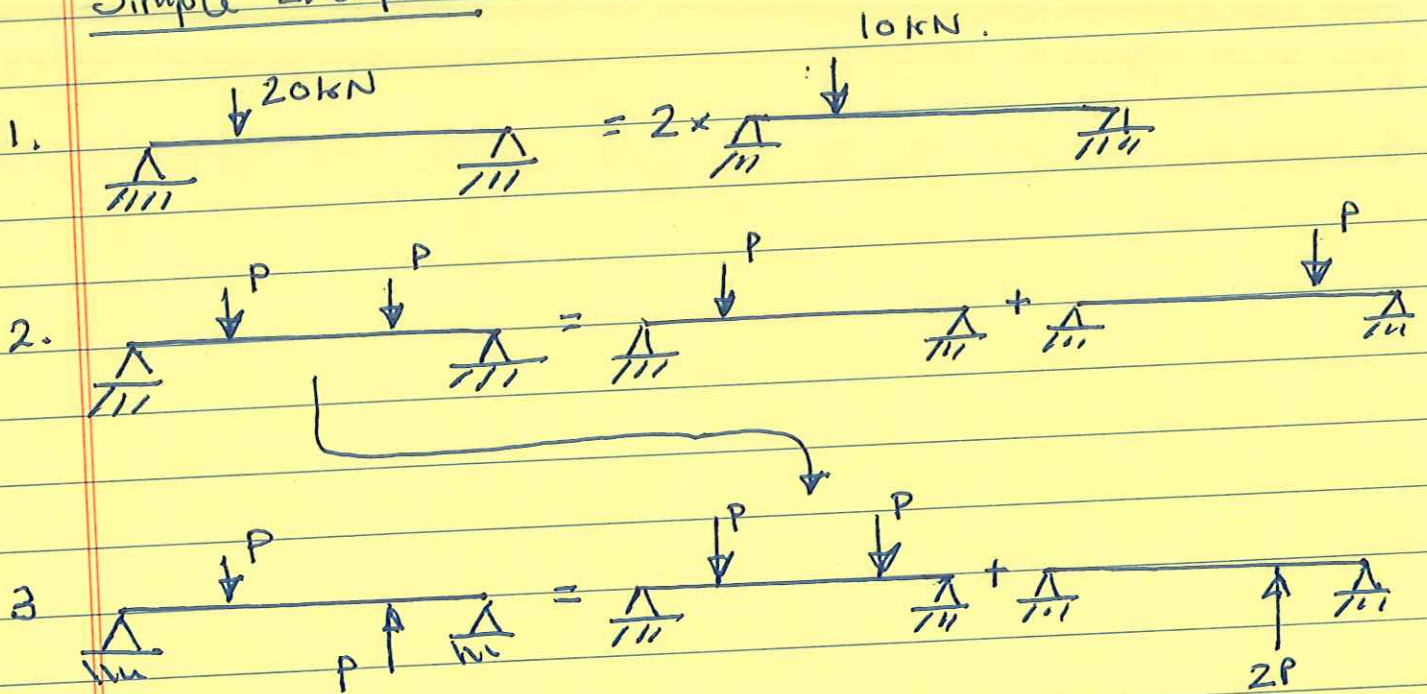 Simple
10 kN.
1. 20 kN = 2 ×
2. P P = P + P
3 P P = P P + 2P